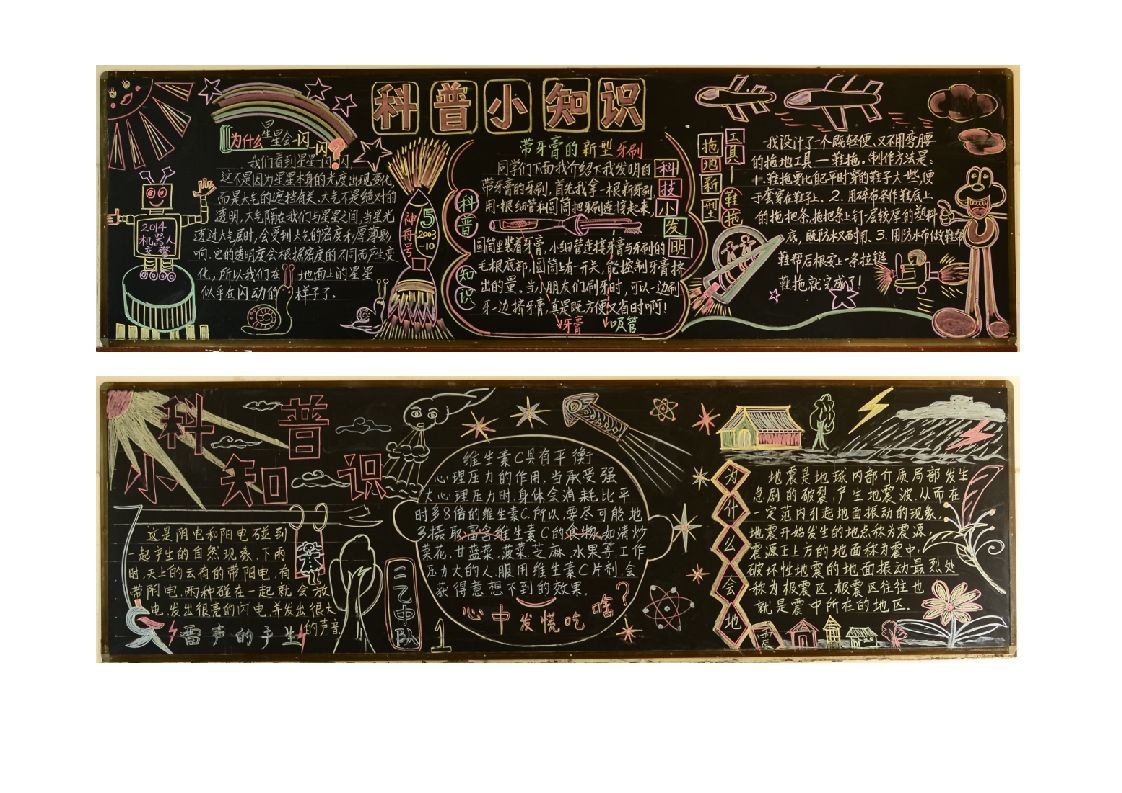 科普小知识
为什么星星会闪闪?
我们看到星星闪闪
这不是因为星星本身的光度出现变化
而是大气的遮挡有关.大气不是绝对的
透明,大气隔在我们与星星之间,当星光
透过大气层时,会受到大气的密度和厚薄影
响.它的透明度会根据密度的不同而产生变
化,所以我们在地面上的星星
似乎在闪动的样子了.
2014
机器人
神舟号
5
2003
10
科普知识
带牙膏的新型牙刷
同学们下面我介绍下我发明的
带牙膏的牙刷.首先我拿一根新牙刷
用一根细管和圆筒把牙刷连接起来
圆筒里装着牙膏,小细管连接牙膏与牙刷的
毛根底部,圆筒上有一开关,能控制牙膏挤
出的量.当小朋友们刷牙时,可以一边刷
牙一边挤牙膏,真是既方便又省时啊!
牙膏 吸管
科技小发明
拖洒新型
工具—鞋拖
我设计了一个既轻便,又不用弯腰
的拖地工具—鞋拖.制作方法是:
1.鞋拖要比平时穿的鞋子大些,便
于套穿在鞋子上. 2.用碎布条作鞋底上
的拖把条,拖把条上钉一层较厚的塑料
底,既防水又耐用. 3.用防水布做鞋帮
鞋帮后根定上一条拉链
鞋拖就完成了!
科普
小知识
这是阴电和阳电碰到
一起产生的自然现象.下雨
时,天上的云有的带阳电,有
带阴电,两种碰在一起就会放
电,发出很亮的闪电,并发出很大
的声音
雷声的产生
二乙中队
维生素C具有平衡
心理压力的作用.当承受强
大心理压力时,身体会消耗比平
时多8倍的维生素C.所以,要尽可能地
多摄取富含维生素C的食物,如清炒
菜花,甘蓝菜,菠菜,芝麻,水果等.工作
压力大的人,服用维生素C片剂,会
获得意想不到的效果.
心中发慌吃啥?
为什么会地
地震是地球内部介质局部发生
急剧的破裂,产生地震波,从而在
一定范围引起地面振动的现象.
地震开始发生的地点称为震源
震源正上方的地面称为震中.
破坏性地震的地面振动最烈处
称为极震区,极震区往往也
就是震中所在的地区.